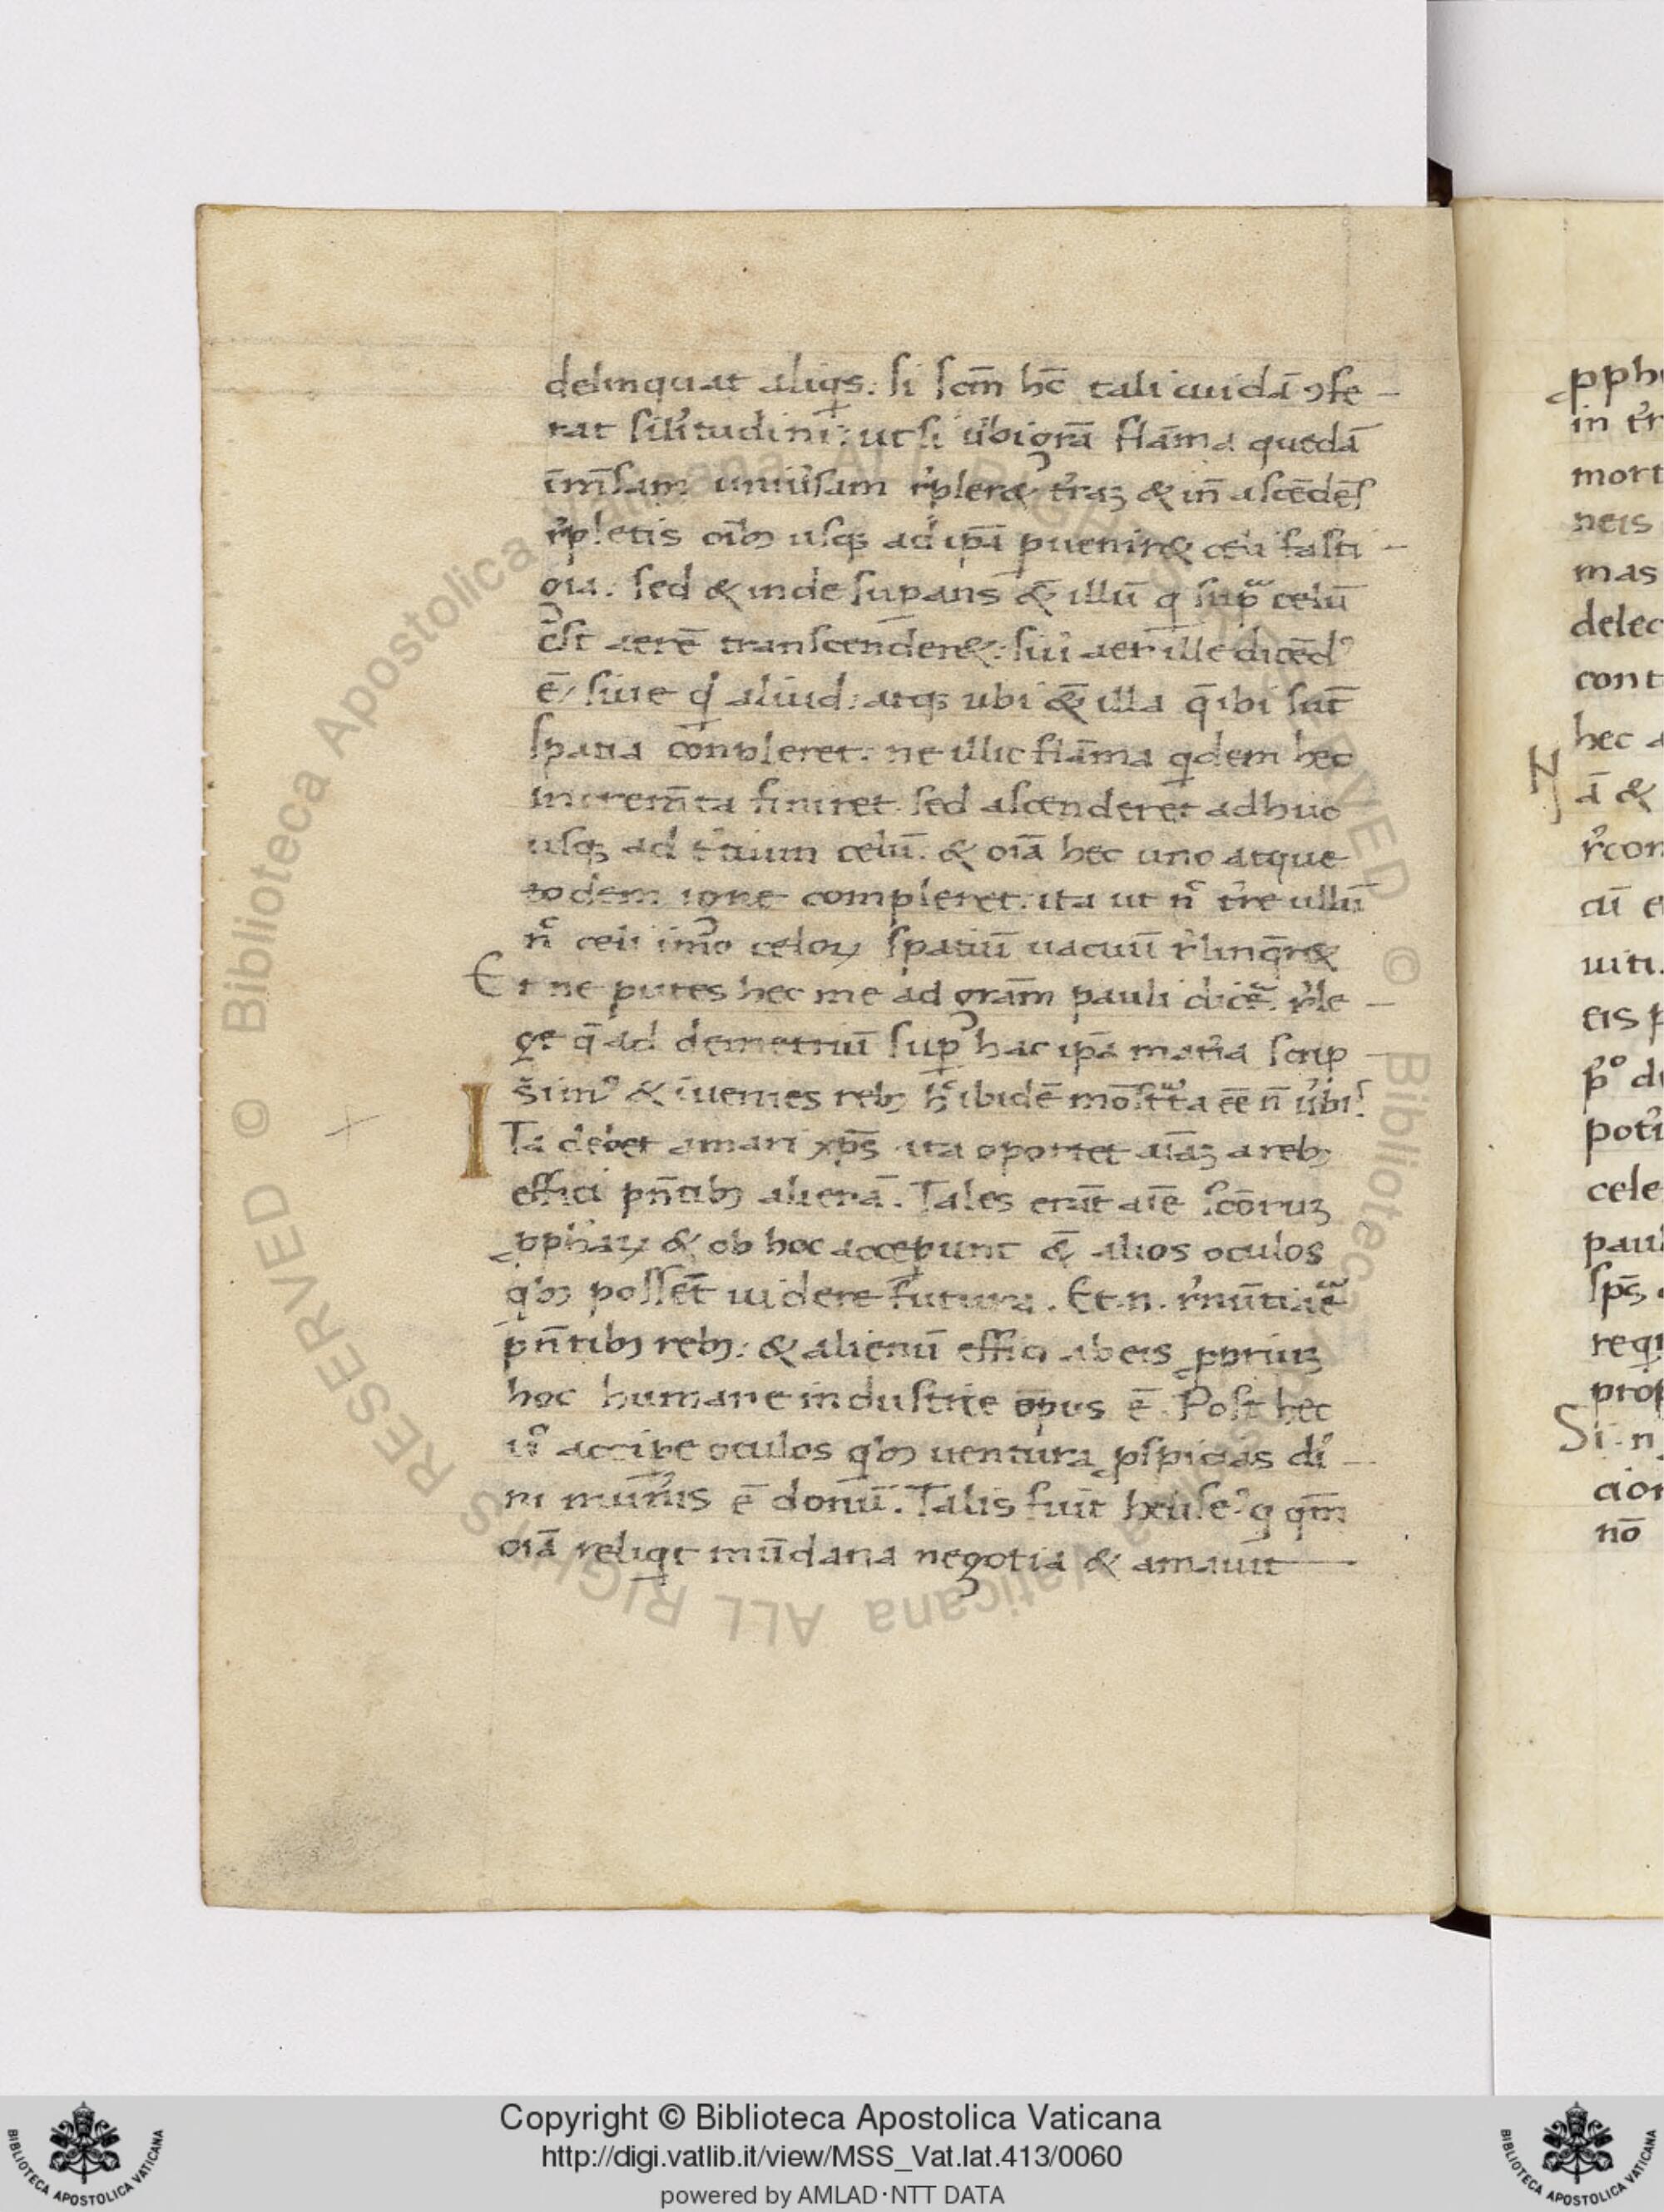 delinquat aliqs. si scm̄ hc̄ tali cuidā ɔfe-
rat sil'itudini: ut si ubi grā flāma quedā
īm̄sam uniu'sam r'pler& t'raʒ & in̄ ascēdēs
r'pletis oīb; usq; ad ip̄a p̱uenir& celi fasti-
gia. sed & inde sup̱ans &̄ illū q sup̱ celū
est aerē transcender&: siu' aer ille dicēd'
ē, siue qd aliud: atq; ubi &̄ illa q̄ ibi sūt
spatia cōnpleret. ne illic flāma qdem hec
increm̄ta finiret. sed ascenderet adhuc
usq; ad t'tium celū. & oīa hec uno atque
eodem igne compleret. ita ut n̄c t're ullū
n̄c celi immo celoꝝ spatiū uacuū r'linq̄r&
Et ne putes hec me ad grām pauli dicē. r'le-
ge q̄ ad demetriū sup̱ hac ip̄a mat'ia scrip-
sim' & īuenies reb; h' ibidē mōst̄ta eē n̄ u'bis
Ta debet amari xp̄s ita oportet aīaʒ a reb;
effici pn̄tib; alienā. Tales erāt aīe scōruʒ
ꝓph'aꝝ & ob hoc accep̱unt &̄ alios oculos
qb; possēt uidere futura. Et.n. r'nūtiāē
pn̄tib; reb;: & alienū effici ab eis ꝓpriuʒ
hoc humane industrie opus ē. Post hec
u° accipe oculos qb; uentura ꝓspicias di-
ni mun'is ē donū. Talis fuit helise' q qm̄
oīa reliqt mūdana negotia & amauit
ꝓph
in t'r
mort
neis
mas
delec
cont
hec a
ā &
r'con
cū e
uiti.
eis p
p° di
poti
cele
paul
sp̄s
requ
prop
Si.n
cior
nō
Copyright © Biblioteca Apostolica Vaticana
http://digi.vatlib.it/view/MSS_Vat.lat.413/0060
powered by AMLAD·NTT DATA
BIBLIOTECA APOSTOLICA VATICANA
BIBLIOTECA APOSTOLICA VATICANA
© Biblioteca Apostolica Vaticana ALL RIGHTS RESERVED © Biblioteca Apostolica Vaticana ALL RIGHTS RESERVED